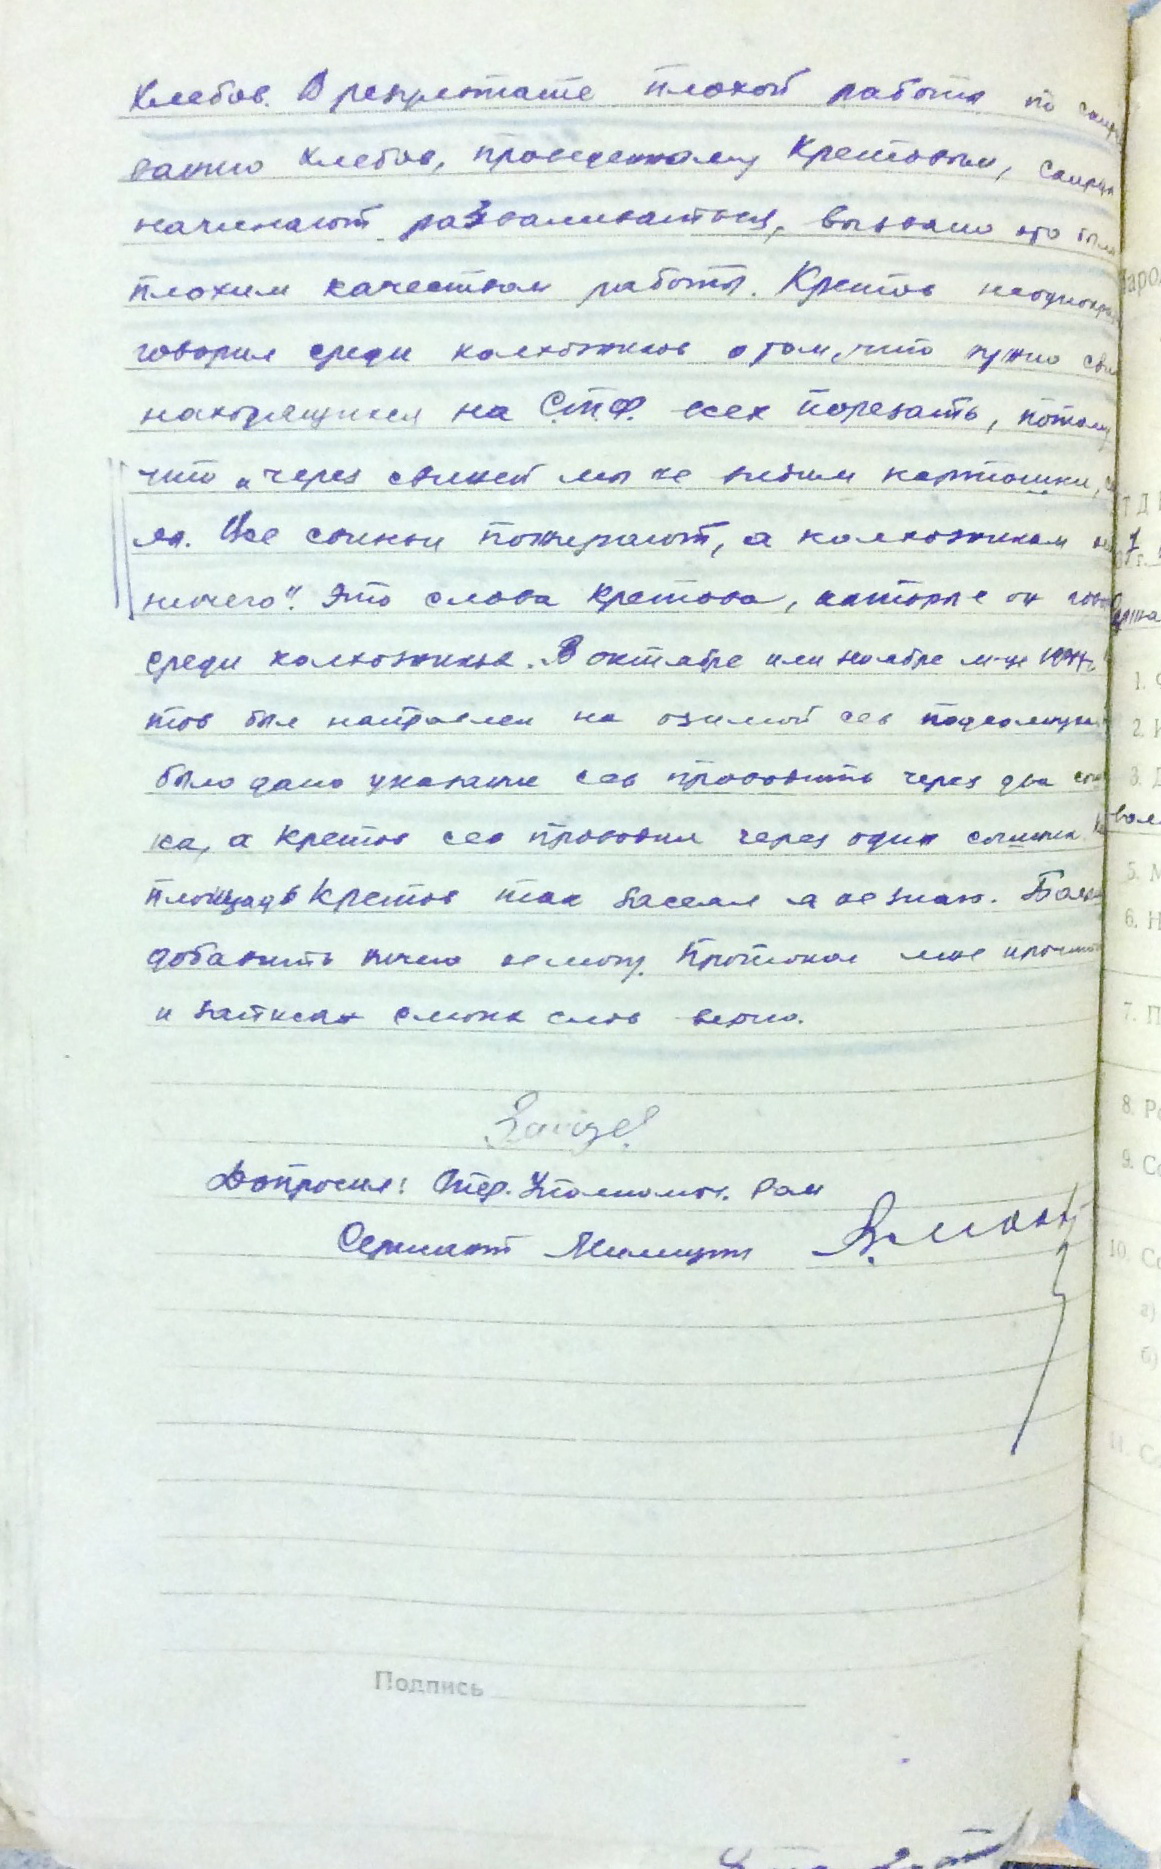 хлебов. В результате плохой работы по скир
ванию хлебов, проведенному Кретовым, скирды
начинают разваливаться, вызвано это было
плохим качеством работы. Кретов неоднокра
говорил среди колхозников о том, что нужно сви
находящихся на С.Т.Ф. всех порезать, потому
что „через свиней мы не видим картошки,
Все свиньи пожирают, а колхозникам
ничего". Это слова Кретова, которые он гово
среди колхозников. В октябре или ноябре м-це
тов был направлен на озимой сев
было дано указание сев проводить через два сош
ка, а Кретов сев проводил через один сошник
площадь Кретов так засеял я не знаю. Больш
добавить ничего не могу. Протокол мне прочит
и записан с моих слов верно.
Допросил: Опер. Уполномоч. РОМ
Сержант Милиции
Подпись
1.
2.
3. Д
5. М
6. Н
7. П
8. Ро
9. Со
10. Со
а)
б)
11. Со